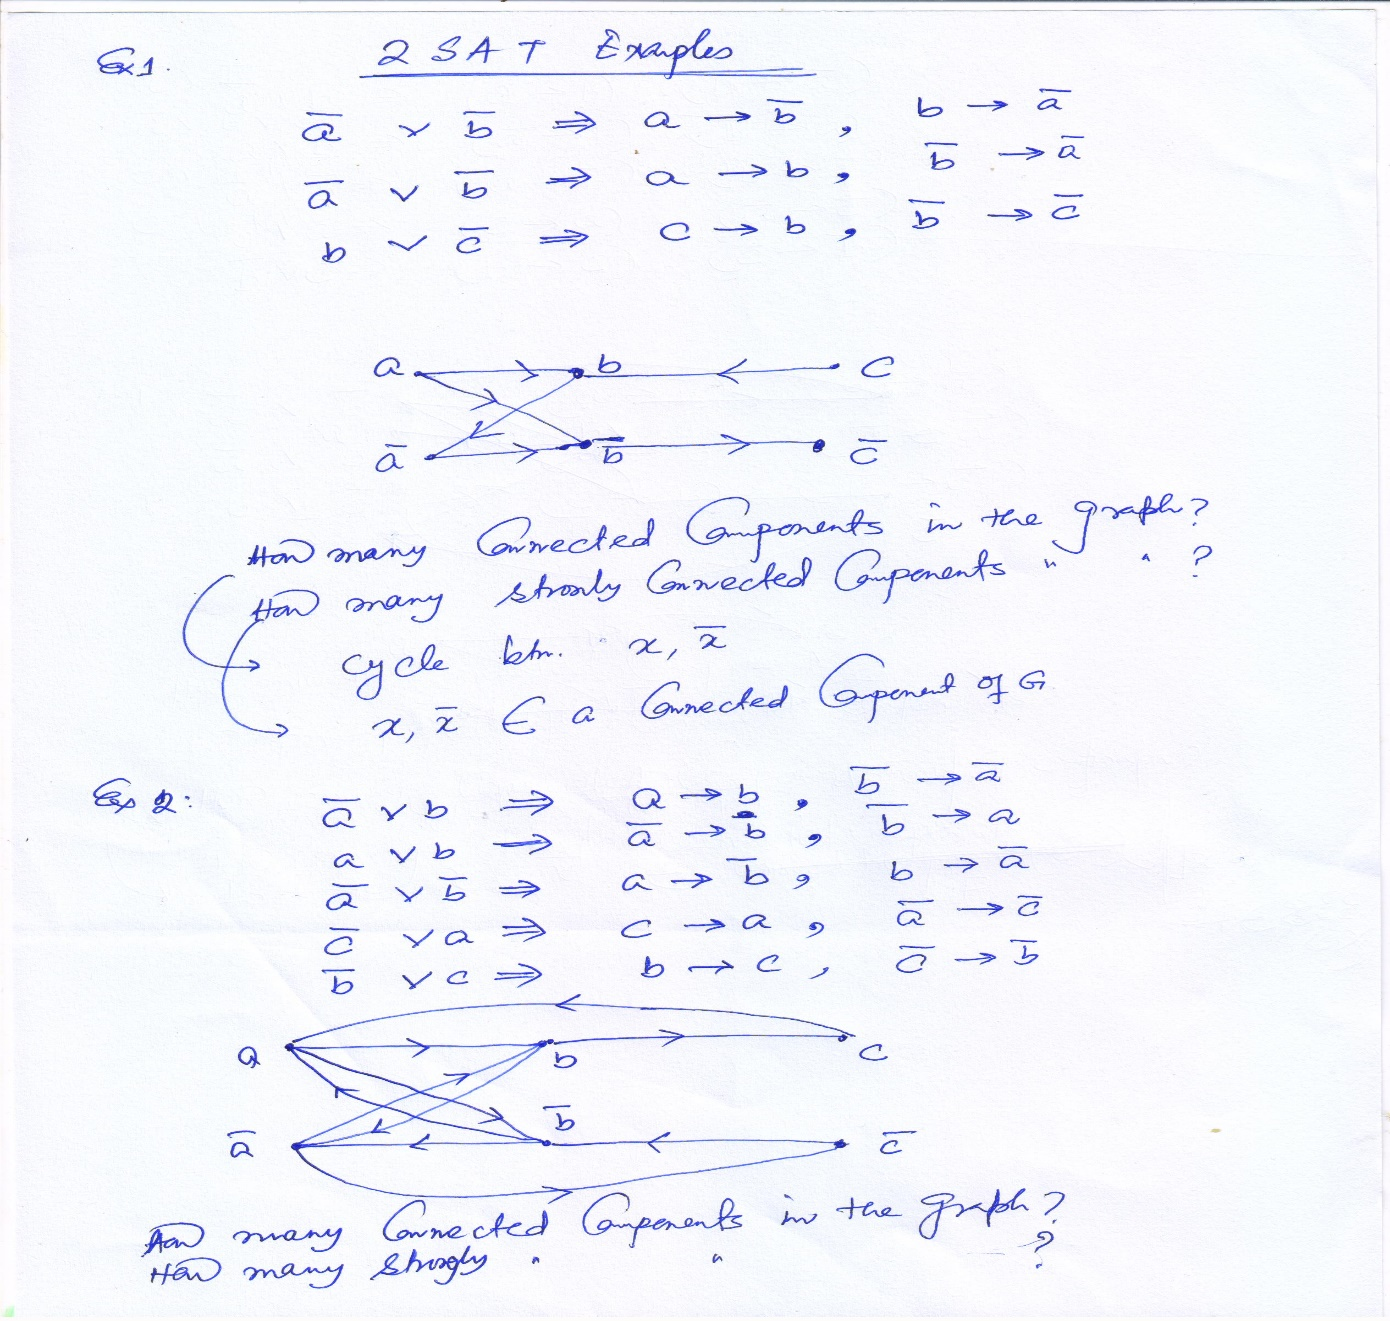 2 SAT Examples
Ex1.
a̅ ∨ b̅ ⇒ a → b̅, b → a̅
a̅ ∨ b̅ ⇒ a → b, b̅ → a̅
b ∨ c̅ ⇒ c → b, b̅ → c̅
a b c
a̅ b̅ c̅
How many Connected Components in the graph?
How many stronly Connected Components " " ?
cycle btn. x, x̅
x, x̅ ∈ a Connected Component of G
Ex 2:
a̅ ∨ b ⇒ a → b, b̅ → a̅
a ∨ b ⇒ a̅ → b, b̅ → a
a̅ ∨ b̅ ⇒ a → b̅, b → a̅
c̅ ∨ a ⇒ c → a, a̅ → c̅
b̅ ∨ c ⇒ b → c, c̅ → b̅
a b c
a̅ b̅ c̅
How many Connected Components in the graph?
How many strongly " " ?